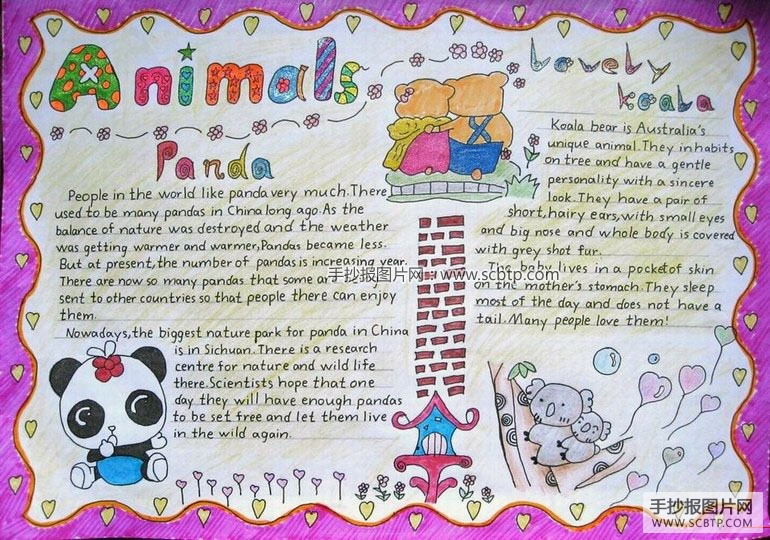 Animals
Panda
People in the world like panda very much.There
used to be many pandas in China long ago.As the
balance of nature was destroyed and the weather
was getting warmer and warmer,Pandas became less.
But at present,the number of pandas is increasing year.
There are now so many pandas that some are
sent to other countries so that people there can enjoy
them.
Nowadays,the biggest nature park for panda in China
is in Sichuan.There is a research
centre for nature and wild life
there.Scientists hope that one
day they will have enough pandas
to be set free and let them live
in the wild again.
Lovely
Koala
Koala bear is Australia's
unique animal.They in habits
on tree and have a gentle
personality with a sincere
look.They have a pair of
short,hairy ears,with small eyes
and big nose and whole body is covered
with grey shot fur.
The baby lives in a pocket of skin
on the mother's stomach.They sleep
most of the day and does not have a
tail.Many people love them!
手抄报图片网：www.scbtp.com
手抄报图片网
WWW.SCBTP.COM